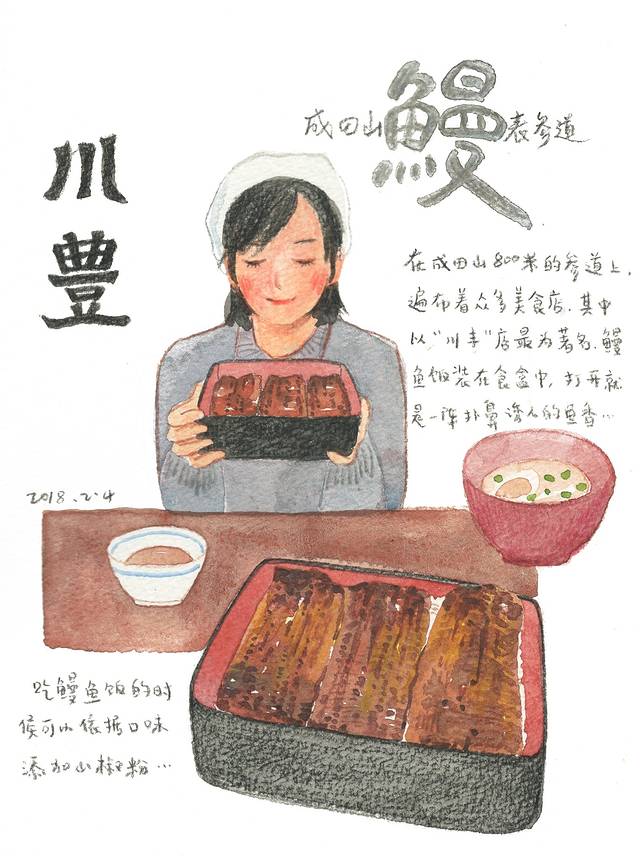 成田山鰻表参道
川
豊
在成田山800米的参道上,
遍布着众多美食店.其中
以"川丰"店最为著名.鳗
鱼饭装在食盒中,打开就
是一阵扑鼻诱人的鱼香…
2018.2.4
吃鳗鱼饭的时
候可以依据口味
添加山椒粉…